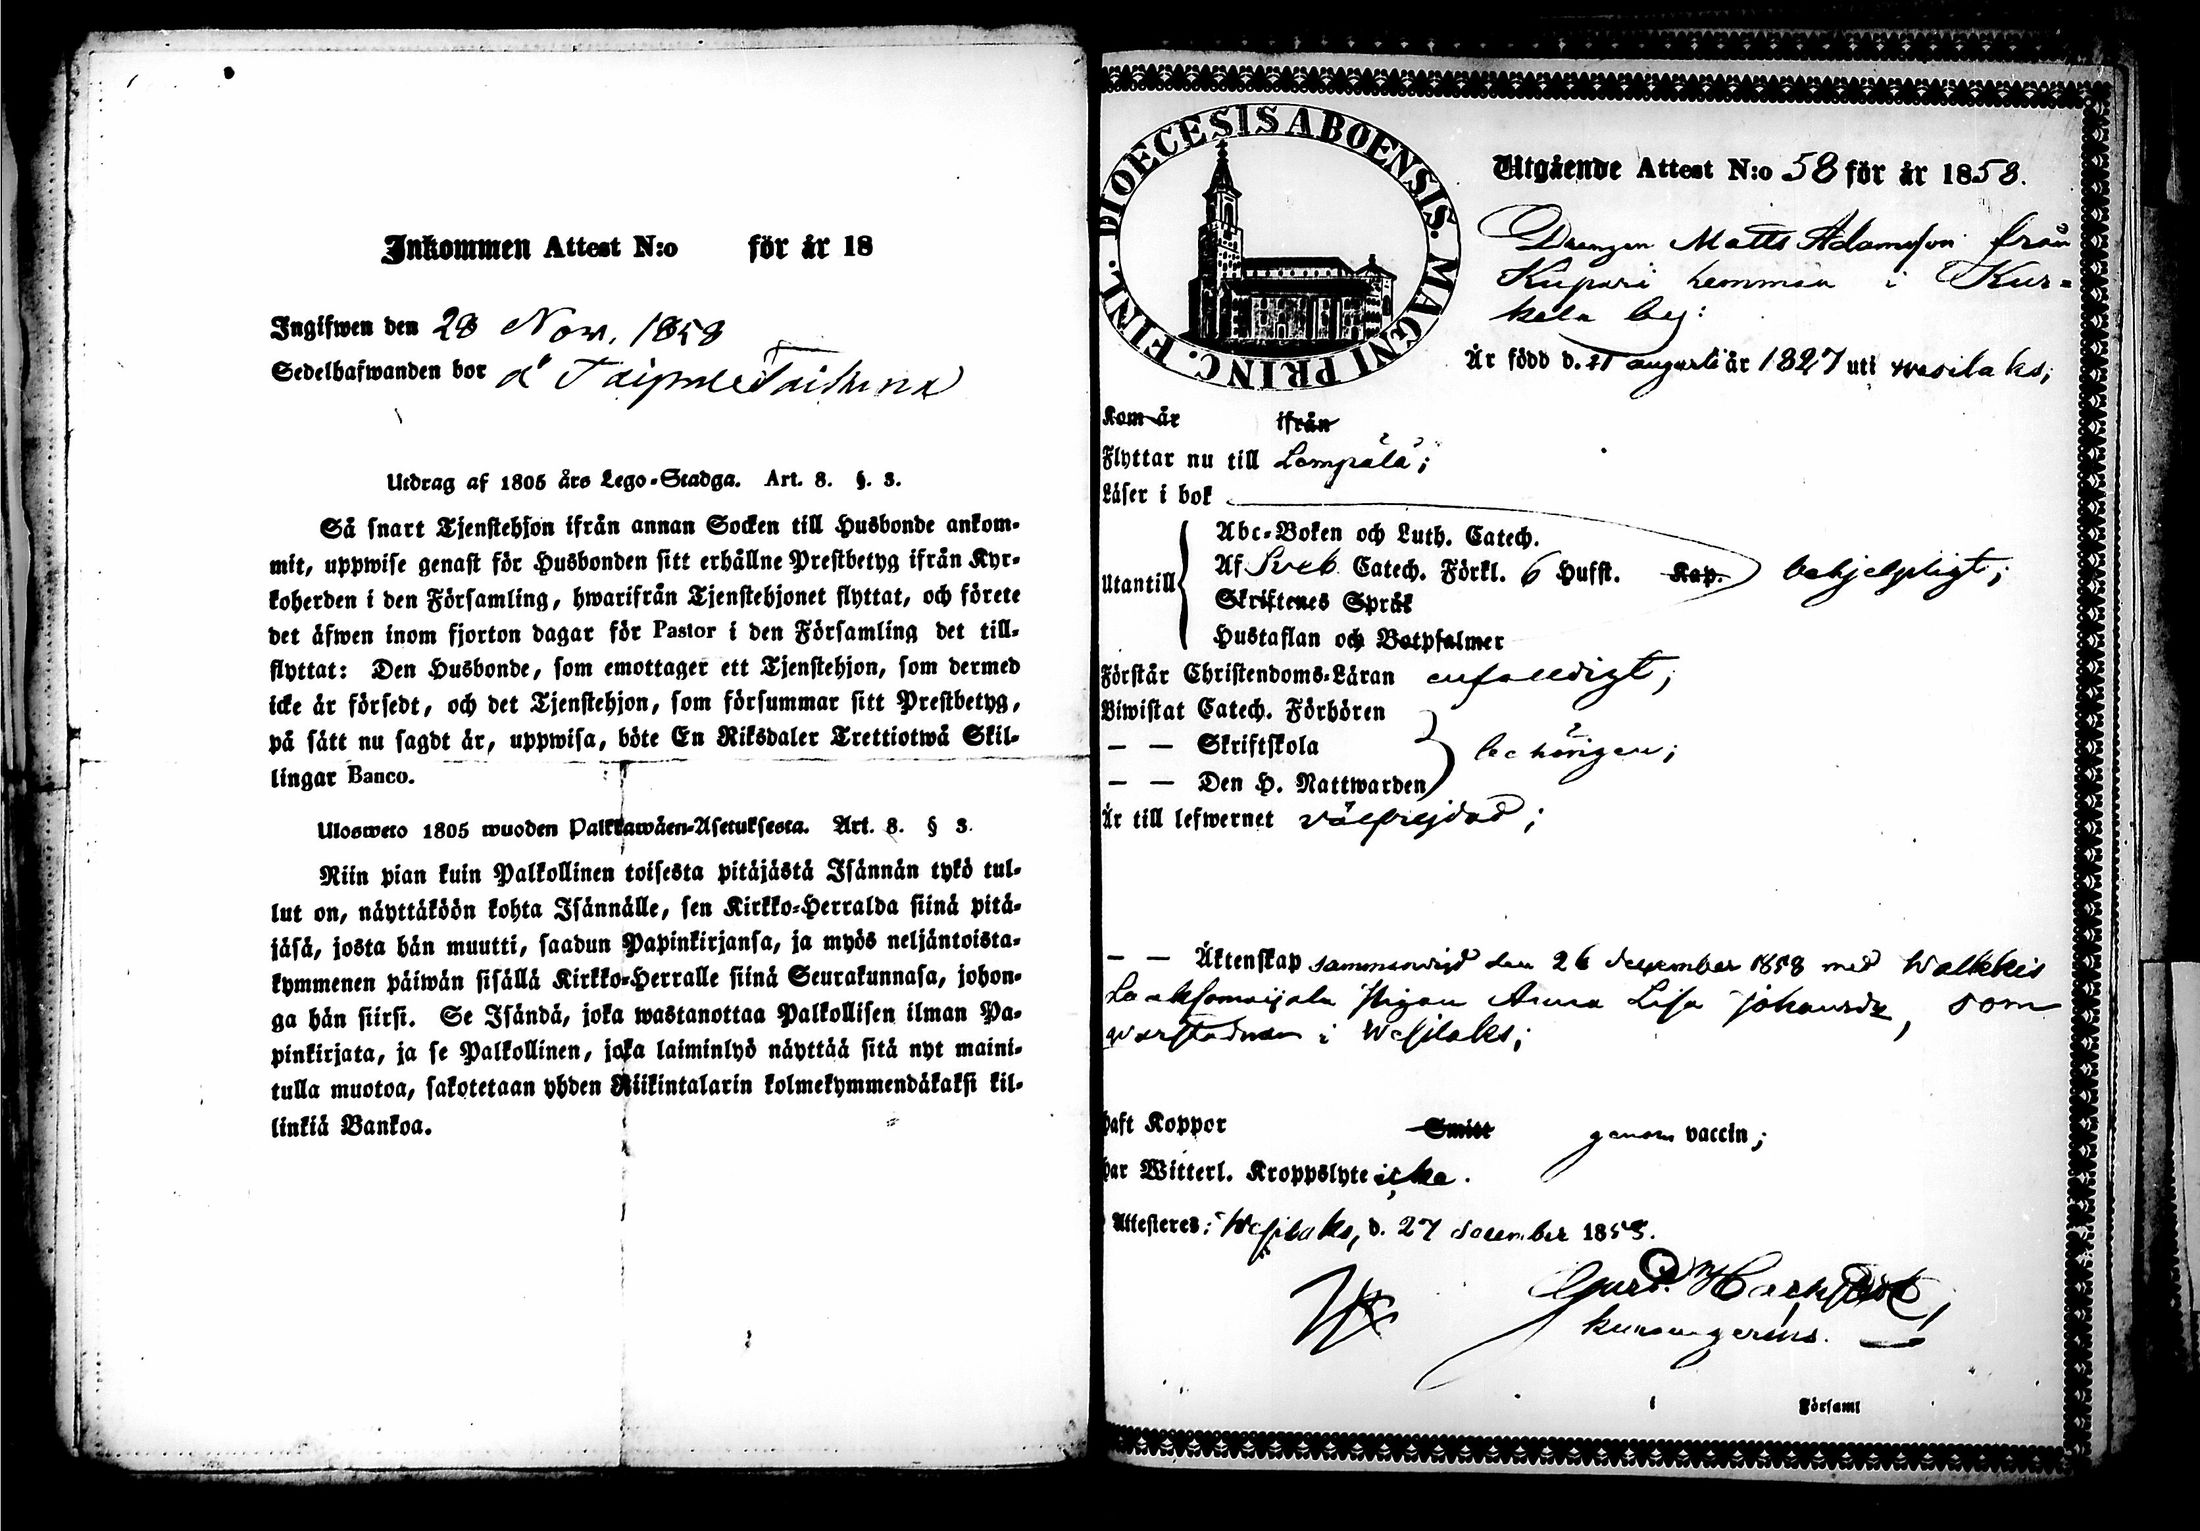 Inkommen Attest N:o för år 18
Ingifwen den 28 Nov. 1858
Sedelhafwanden bor å Taipale
Utdrag af 1805 års Lego-Stadga. Art. 8. §. 3.
Så snart Tjenstehjon ifrån annan Socken till Husbonde ankom-
mit, uppwise genast för Husbonden sitt erhållne Prestbetyg ifrån Kyr-
koherden i den Församling, hwarifrån Tjenstehjonet flyttat, och förete
det äfwen inom fjorton dagar för Pastor i den Församling det till-
flyttat: Den Husbonde, som emottager ett Tjenstehjon, som dermed
icke är försedt, och det Tjenstehjon, som försummar sitt Prestbetyg,
på sätt nu sagdt är, uppwisa, böte En Riksdaler Trettiotwå Skil-
lingar Banco.
Ulosweto 1805 wuoden Palkkawäen-Asetuksesta. Art. 8. § 3.
Niin pian kuin Palkollinen toisesta pitäjästä Isännän tykö tul-
lut on, näyttäköön kohta Isännälle, sen Kirkko-Herralda siinä pitä-
jäsä, josta hän muutti, saadun Papinkirjansa, ja myös neljäntoista-
kymmenen päiwän sisällä Kirkko-Herralle siinä Seurakunnasa, johon-
ga hän siirsi. Se Isändä, joka wastanottaa Palkollisen ilman Pa-
pinkirjata, ja se Palkollinen, joka laiminlyö näyttää sitä nyt maini-
tulla muotoa, sakotetaan yhden Riikintalarin kolmekymmendäkaksi kil-
linkiä Bankoa.
DIOECESIS ABOENSIS. MAGNI PRINC. FINL.
Utgående Attest N:o 58 för år 1858.
Drengen Matts Adamsson från
Kupari hemman i Kur-
kela by:
Är född d. 21 augusti år 1827 uti wesilaks;
Kom år ifrån
Flyttar nu till Lempälä;
Läser i bok
Abc-Boken och Luth. Catech.
Utantill Af Sveb. Catech. Förkl. 6 Hufst. Kap. behjelpligt;
Skriftenes Språk
Hustaflan och Botpsalmer
Förstår Christendoms-Läran enfaldigt;
Biwistat Catech. Förhören
— — Skriftskola behörigen;
— — Den H. Nattwarden
Är till lefwernet välfrejdad;
— — Äktenskap sammanvigd den 26 december 1858 med Walkkis
Laaksomaijala Pigan Anna Lisa Johansdr, som
qvarstadnar i Wesilaks;
haft Koppor Smitt genom vaccin;
har Witterl. Kroppslyte icke.
Attesteres: Wesilaks, d. 27 december 1858.
i Församl